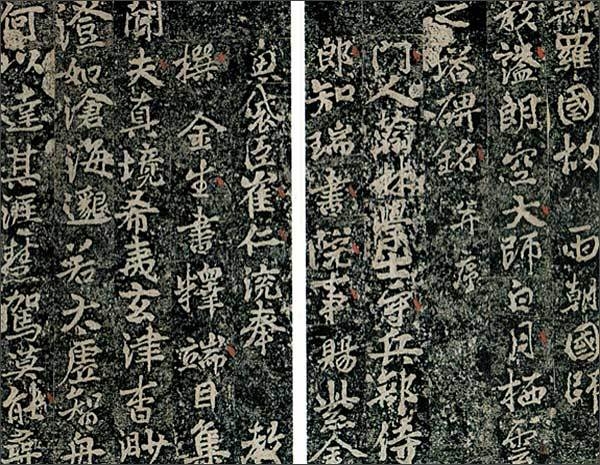 新羅國故 兩朝國師
教謚朗空大師白月栖雲
之塔碑銘 并序
門人翰林學士守兵部侍
郎知瑞書院事賜紫金
魚袋臣崔仁渷奉 教
撰 金生書釋端目集
聞夫真境希夷玄津杳渺
澄如滄海邈若太虛智舟
何以達其涯慧駕莫能尋